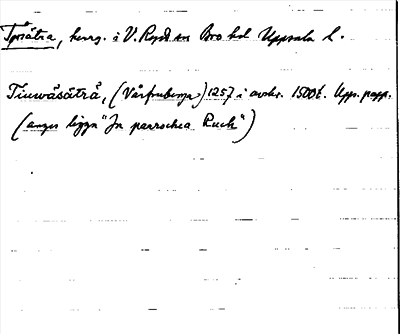 Tjusätra, herrg. i V. Ryds sn Bro hd Uppsala l.
Tiuwåsätrå, (Vårfruberga) 1257 i avskr. 1500t. Upps. papp.
(anges ligga "In parrochia Ruch")